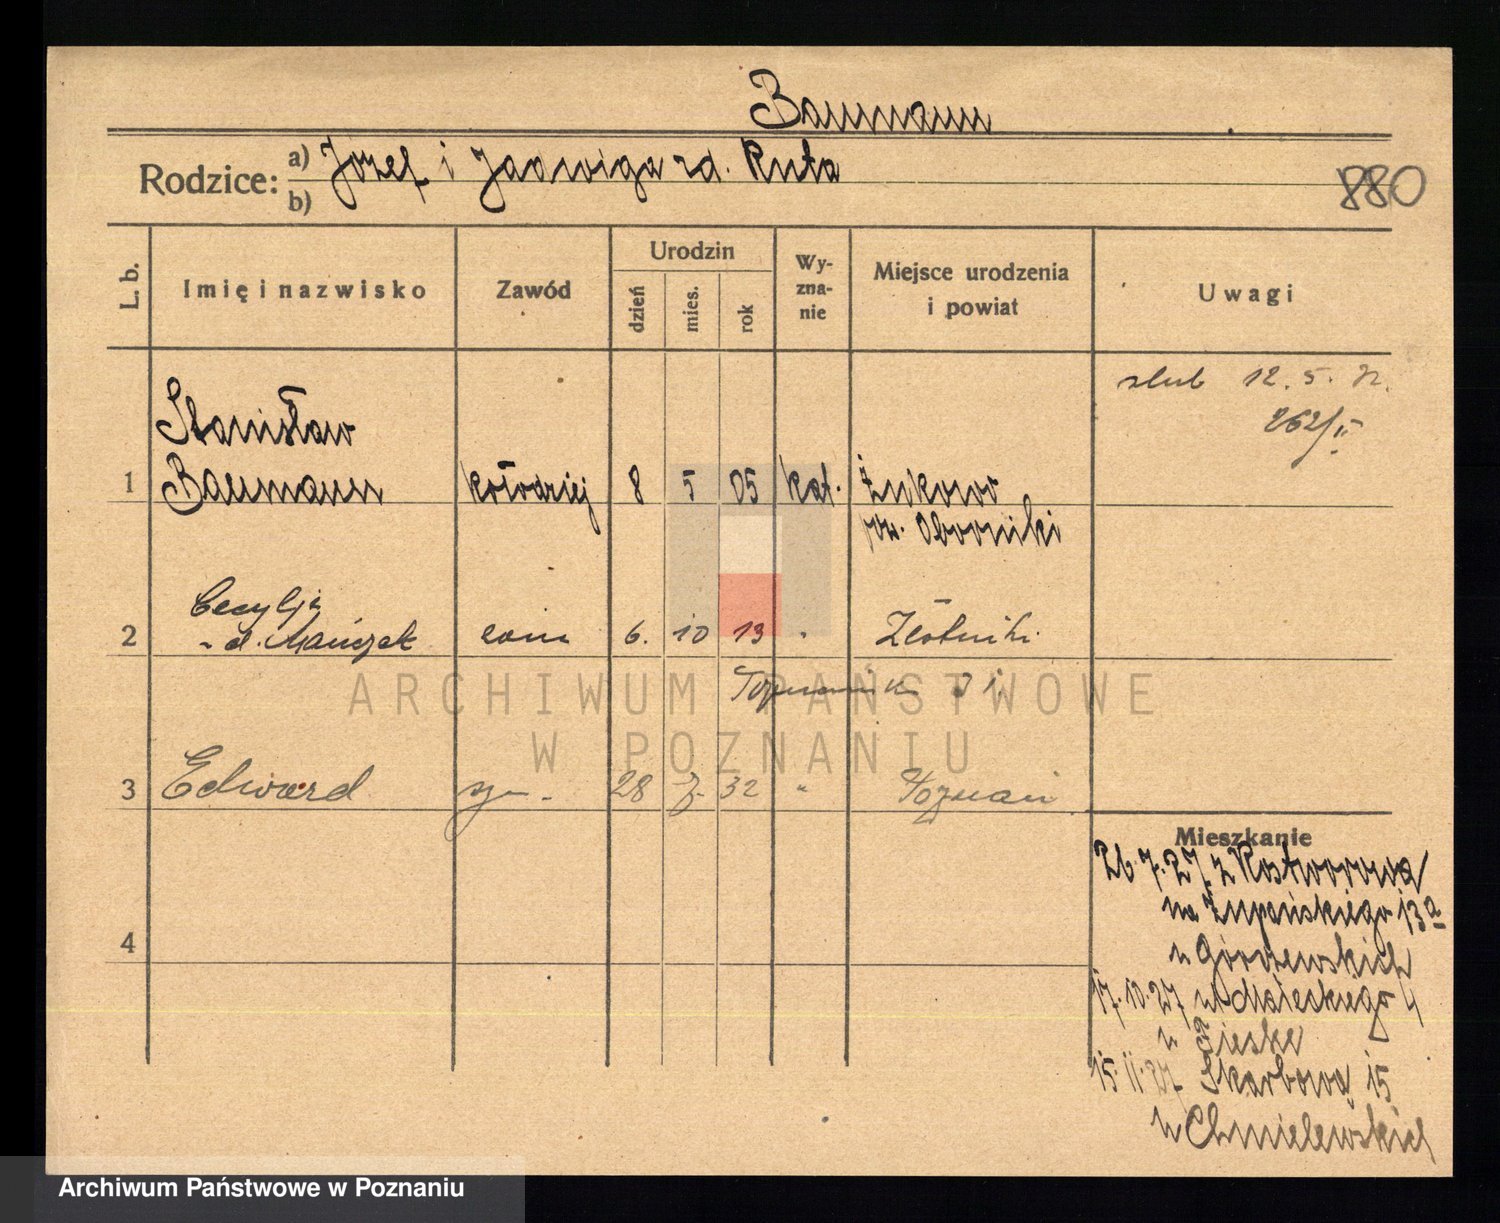 Baumann
Rodzice: a) Józef i Jadwiga zd. Kuta
b)
880
L. b.
Imię i nazwisko
Zawód
Urodzin
dzień
mies.
rok
Wy-
zna-
nie
Miejsce urodzenia
i powiat
Uwagi
ślub 12. 5. 32.
262/II
Stanisław
1 Baumann kołodziej 8 5 05 kat. Żukowo
pow. Oborniki
Cecylja
2 zd. Mańczak 6. 10 13 " Złotniki
3 Edward syn. 28 7. 32 " Poznań
4
Mieszkanie
26.7.27 z Rostworowa
na Żupańskiego 13a
u Górczewskich
17.10.27 Małeckiego 4
u Zieske
15.11.27 Skarbowa 15
u Chmielewskich
ARCHIWUM PAŃSTWOWE
W POZNANIU
Archiwum Państwowe w Poznaniu